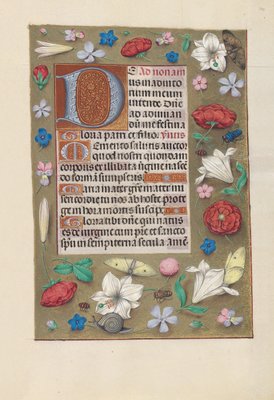 De ad nonam
us in adiutoriũ meum
intende. Dñe
ad adiuuan
dũ me festina
Gloria patri et filio. Ymnus
Memento salutis auctor
quod nostri quondam
corporis ex illibata virgine nascẽ
do formã sumpseris
Maria mater gratie mater mi
sericordie tu nos ab hoste prote
ge in hora mortis suscipe
Gloria tibi dñe qui natus
es de virgine cum patre et sancto
spũ in sempiterna secula amẽ